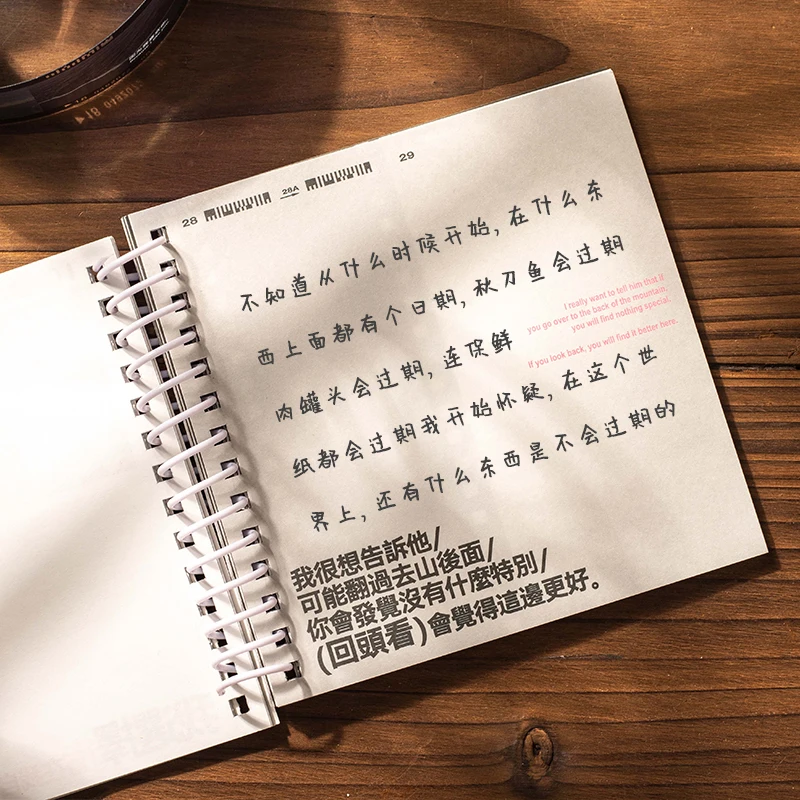 28 28A 29
不知道从什么时候开始,在什么东
西上面都有个日期,秋刀鱼会过期
I really want to tell him that if
you go over to the back of the mountain,
you will find nothing special.
If you look back, you will find it better here.
肉罐头会过期,连保鲜
纸都会过期我开始怀疑,在这个世
界上,还有什么东西是不会过期的
我很想告訴他/
可能翻過去山後面/
你會發覺沒有什麼特別/
(回頭看)會覺得這邊更好。